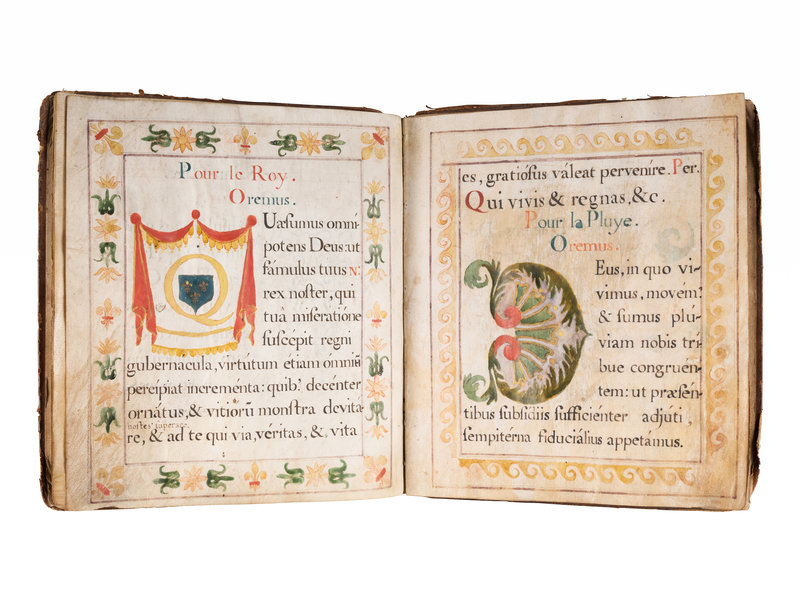 Pour le Roy.
Oremus.
QUæsumus omni-
potens Deus: ut
fámulus tuus N:
rex noſter, qui
tuâ miſeratióne
ſuſcépit regni
gubernacula, virtútum étiam ómniũ
percipiat increménta: quib' decénter
ornátus, & vitiorũ monſtra devitá-
hoſtes ſuperáre
re, & ad te qui via, véritas, & vita
es, gratióſus váleat perveníre. Per.
Qui vivis & regnas, &c.
Pour la Pluye.
Oremus.
DEus, in quo ví-
vimus, movém'
& ſumus plú-
viam nobis trí-
bue congruén-
tem: ut præſén-
tibus ſubſídiis ſufficiénter adjúti,
ſempitérna fiduciálius appetámus.